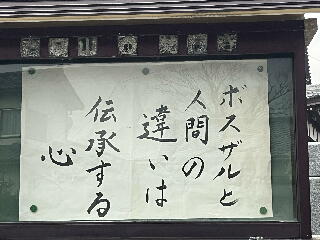 ボスザルと
人間の
違いは
伝承する
心